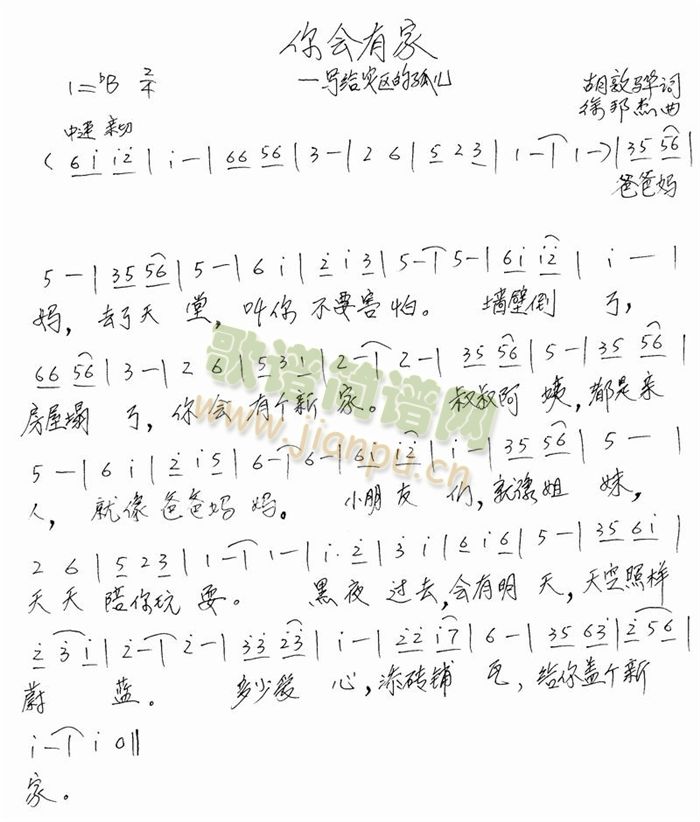 你会有家
—写给灾区的孤儿
1=♭B 2/4
胡敦骅词
徐邦杰曲
中速 亲切
( 6 i̇ i̇ 2̇ | i̇ — | 6 6 5 6 | 3 — | 2 6 | 5 2 3 | 1 — | 1 — ) | 3 5 5 6 |
爸爸妈
5 — | 3 5 5 6 | 5 — | 6 i̇ | 2̇ i̇ 3̇ | 5 — | 5 — | 6 i̇ i̇ 2̇ | i̇ — |
妈，去了天堂，叫你不要害怕。 墙壁倒了，
6 6 5 6 | 3 — | 2 6 | 5 3 1 | 2 — | 2 — | 3 5 5 6 | 5 — | 3 5 5 6 |
房屋塌了，你会有个新家。 叔叔阿姨，都是亲
5 — | 6 i̇ | 2̇ i̇ 5 | 6 — | 6 — | 6 i̇ i̇ 2̇ | i̇ — | 3 5 5 6 | 5 — |
人，就像爸爸妈妈。 小朋友们，就像姐妹，
2 6 | 5 2 3 | 1 — | 1 — | i̇. 2̇ | 3̇ i̇ | 6 i̇ 6 | 5 — | 3 5 6 i̇ |
天天陪你玩耍。 黑夜过去，会有明天，天空照样
2̇ 3̇ i̇ | 2̇ — | 2̇ — | 3̇ 3̇ 2̇ 3̇ | i̇ — | 2̇ 2̇ i̇ 7 | 6 — | 3 5 6 3 | 2̇ 5 6 |
蔚蓝。 多少爱心，添砖铺瓦，给你盖个新
i̇ — | i̇ 0 ‖
家。
歌谱简谱网
www.jianpu.cn